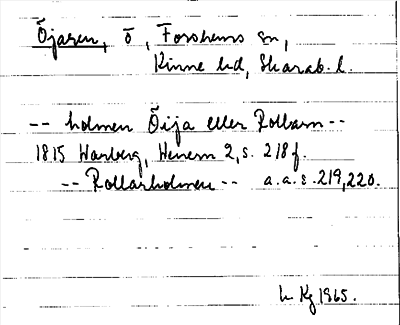 Öjaren, ö, Forshems sn,
Kinne hd, Skarab. l.
-- holmen Öija eller Rollarn --
1815 Warberg, Wenern 2, s. 218 f.
-- Rollarholmen -- a.a. s. 219, 220.
L Kg 1965.